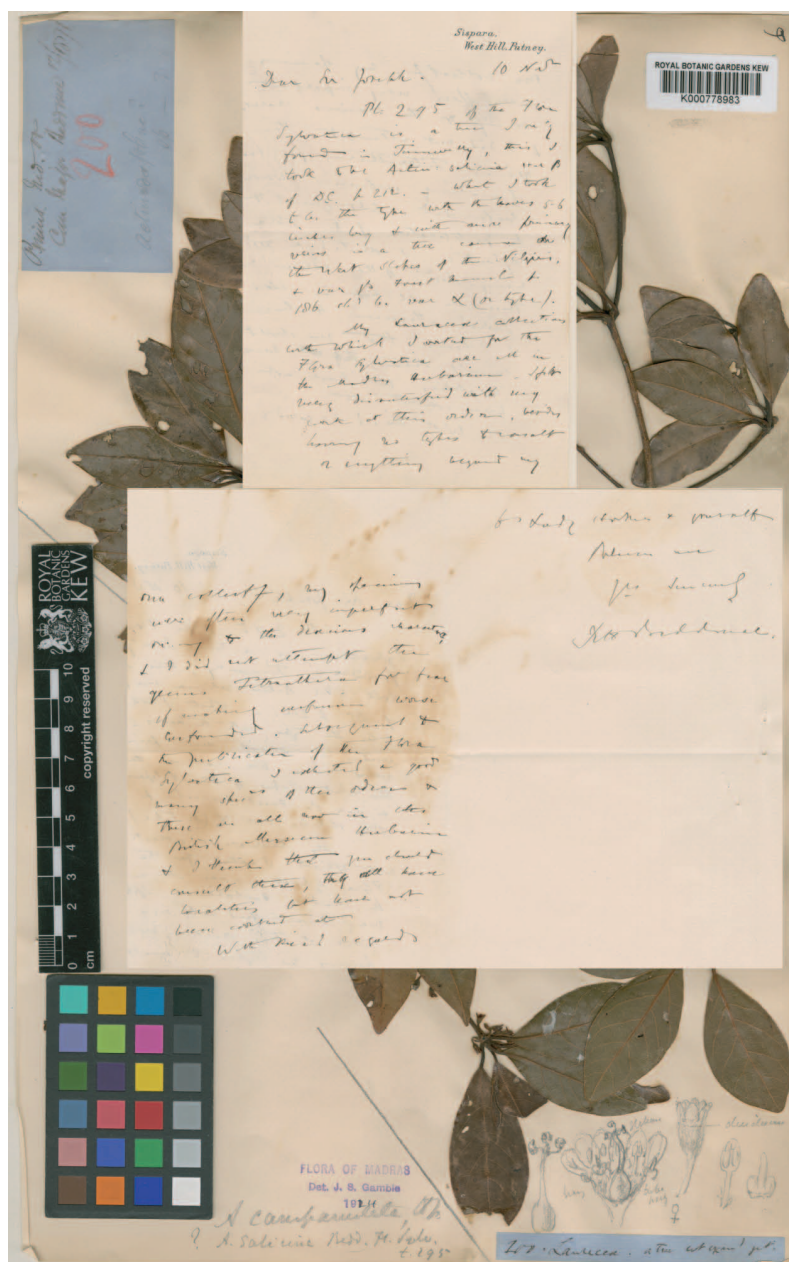 Sispara.
West Hill, Putney.
10 Nov
Dear Sir Joseph.
Pl. 295 of the Flora
Sylvatica is a tree I only
found in Tinnevelly, this I
took to be Actin: salicina
of DC. p 212. – What I took
to be the type with the leaves 5-6
inches long & with more primary
veins is a tree common on
the West slopes of the Nilgiris.
My Laurineae collections
with which I worked for the
Flora Sylvatica are all in
the Madras Herbarium. I felt
very dissatisfied with my
work at this order, besides
having no types to consult
or anything beyond my
own collectg, my specimens
were often very imperfect
owing to the dioecious character,
& I did not attempt the
genus Tetranthera for fear
of making confusion worse
confounded. Subsequent to
the publication of the Flora
Sylvatica I collected a good
many spec's of this order &
these are all now in the
British Museum Herbarium
& I think that you should
consult these, they all have
localities but have not
been worked at
With kind regards
to Lady Hooker & yourself
Believe me
yrs sincerely
R H Beddome.
ROYAL BOTANIC GARDENS KEW
K000778983
200
ROYAL
BOTANIC
GARDENS
KEW
copyright reserved
0 1 2 3 4 5 6 7 8 9 10
cm
FLORA OF MADRAS
Det. J. S. Gamble
1924
A campanulata, Hk
? A. Salicina Bedd. Fl. Sylv.
t. 295
♀
200. Laurineae. a tree